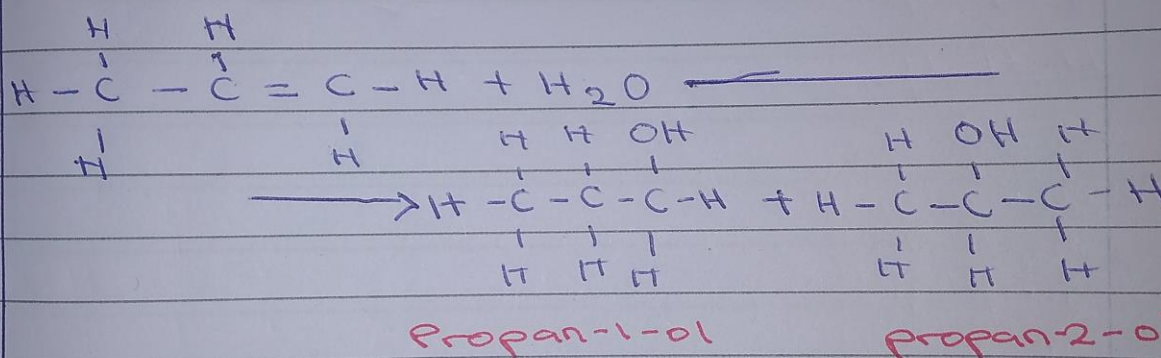 H H
H - C - C = C - H + H2O
H H H H OH H OH H
→ H - C - C - C - H + H - C - C - C - H
H H H H H H
propan-1-ol propan-2-o